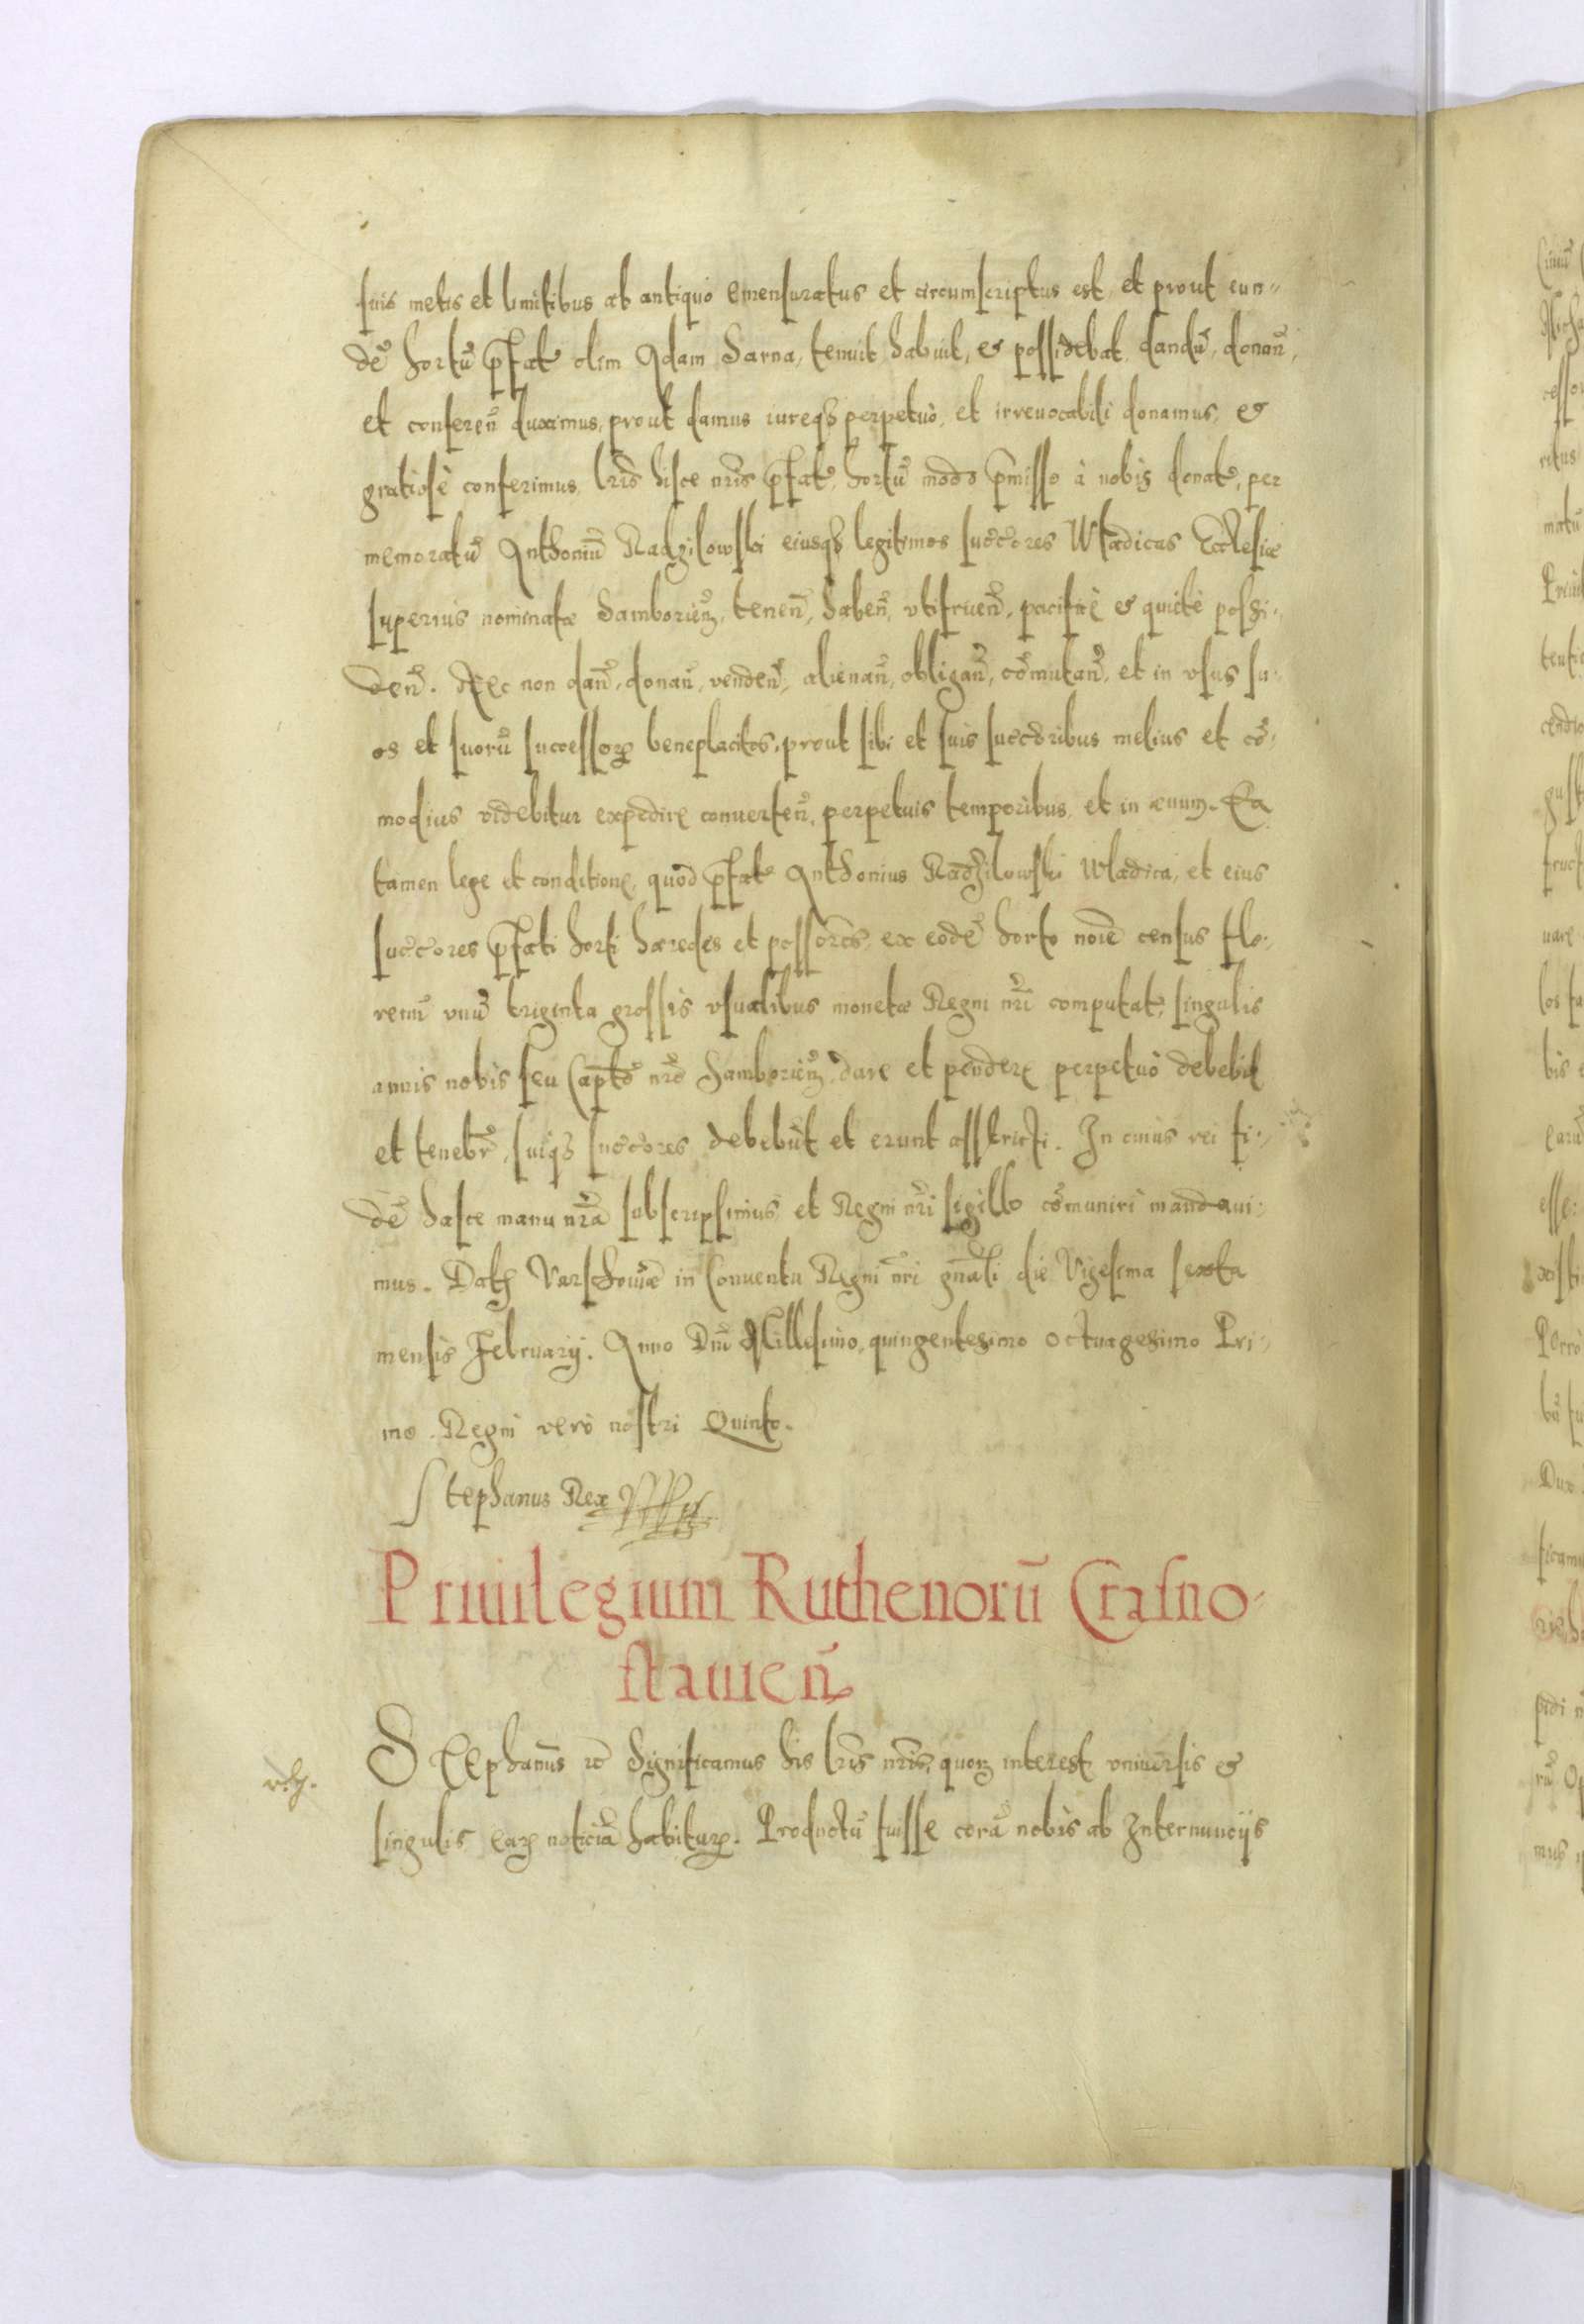 suis metis et limitibus ab antiquo emensuratus et circumscriptus est, et prout eun-
dē hortū p̄fat⁹ olim Adam Sarna, tenuit habuit, & possidebat, dandū, donan̄,
et conferen̄ duximus, prout damus iureq₃ perpetuò, et irreuocabili donamus, &
gratiosè conferimus, lr̄is hisce nr̄is p̄fat⁹, hortū modo p̄misso à nobis donat⁹, per
memoratū Anthoniū Radzilowski eiusq₃ legitimos succ̄ores Wladicas Ecclesiæ
superius nominatæ Samborien̄, tenen̄, haben̄, vtifruen̄, pacificè & quietè possi-
den̄. Nec non dan̄, donan̄, venden̄, alienan̄, obligan̄, cōmutan̄, et in vsus su-
os et suorū successorꝝ beneplacitos, prout sibi et suis succ̄oribus melius et cō-
modius videbitur expedire conuerten̄, perpetuis temporibus, et in æuum. Ea
tamen lege et conditione, quod p̄fat⁹ Anthonius Radzilowski Wladica, et eius
succ̄ores p̄fati horti hæredes et possores, ex eodē horto noīe census flo-
renū vnū triginta grossis vsualibus monetæ Regni nr̄i computat⁹, singulis
annis nobis seu Capt̄o nr̄o Samborien̄, dare et pendere perpetuò debebit
et tenebr̄, suiq₃ succ̄ores debebūt et erunt asstricti. In cuius rei fi-
dē hasce manu nr̄a subscripsimus, et Regni nr̄i sigillo cōmuniri mandaui-
mus. Dat̄ Varschouiæ in Conuentu Regni nr̄i gn̄ali die Vigesima sexta
mensis February. Anno Dn̄i Millesimo, quingentesimo octuagesimo Pri-
mo. Regni verò nostri Quinto.
Stephanus Rex
Priuilegium Ruthenorū Crasno-
stauien̄
STEphanus &c Significamus his lr̄is nr̄is, quorꝝ interest vniuersis &
singulis earꝝ noticiā habiturꝝ. Productū fuisse corā nobis ab Internuncijs